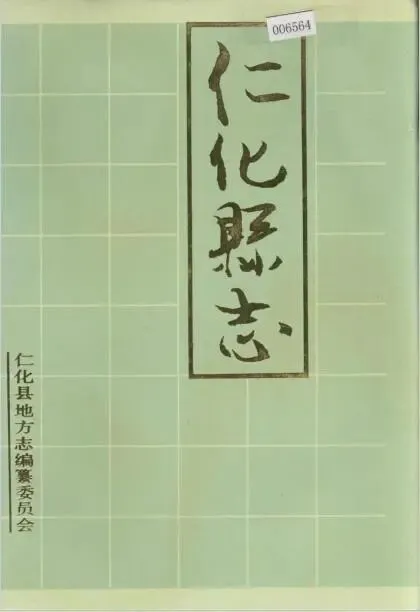 006564
仁化縣志
仁化县地方志编纂委员会